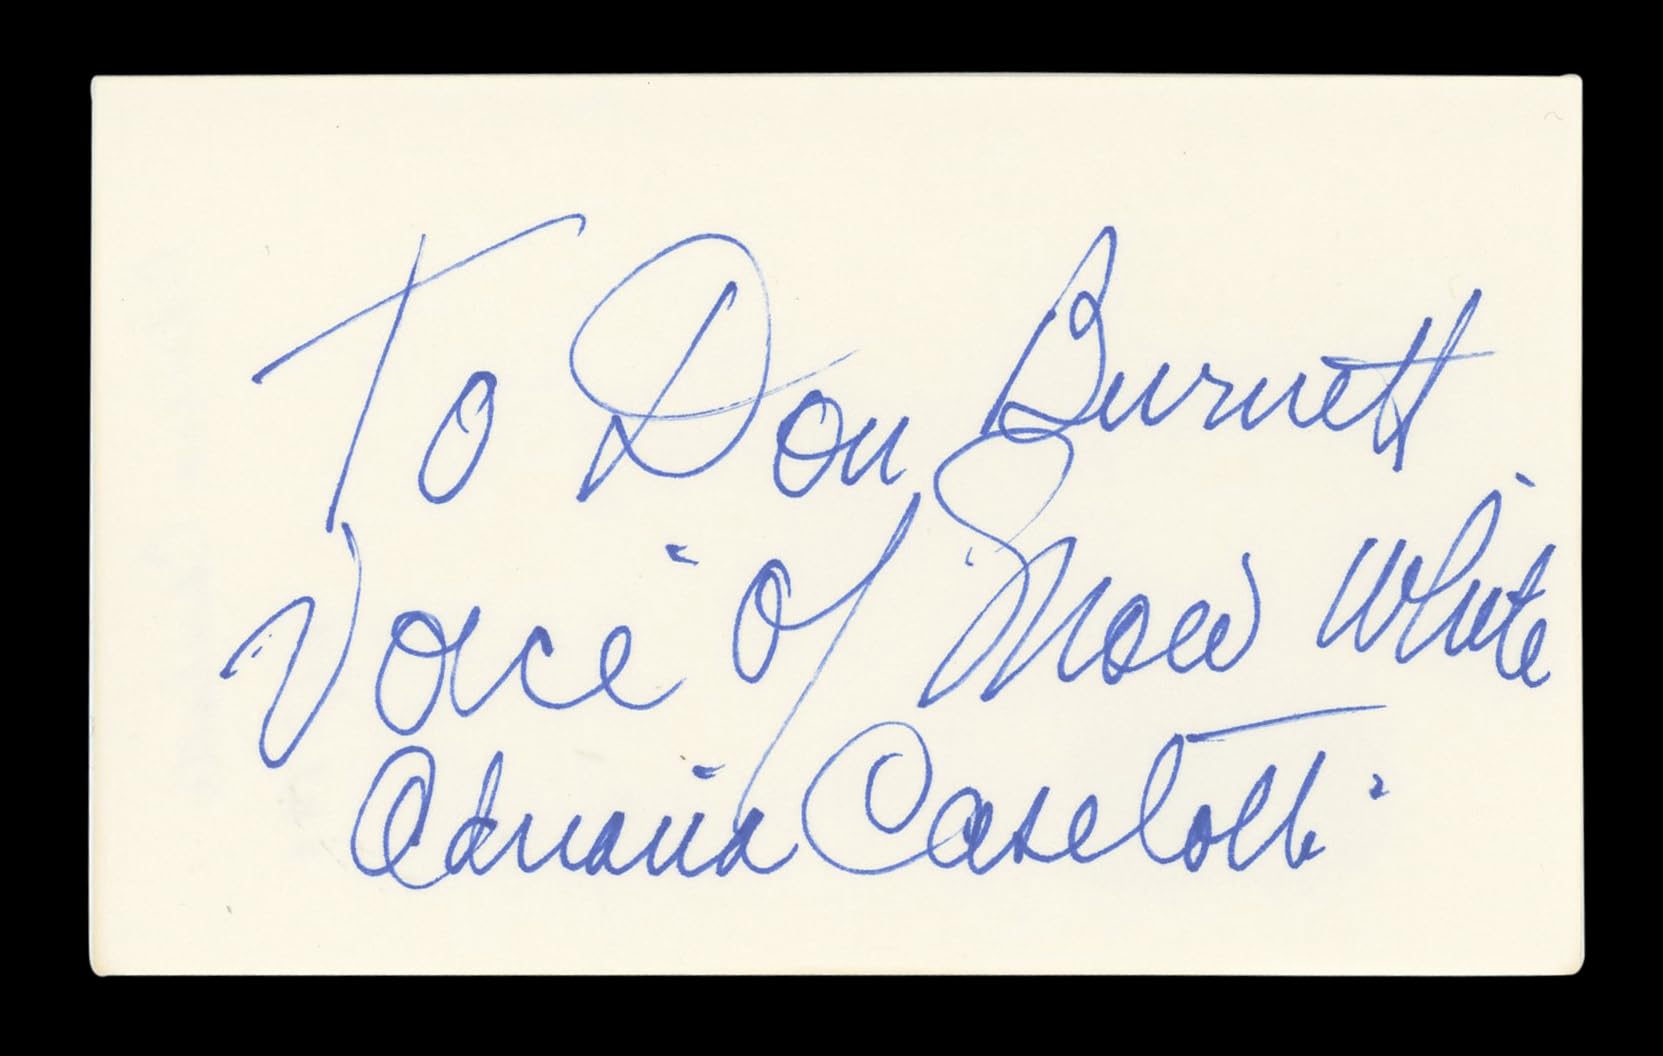 To Don Burnett
Voice of Snow White
Adriana Caselotti